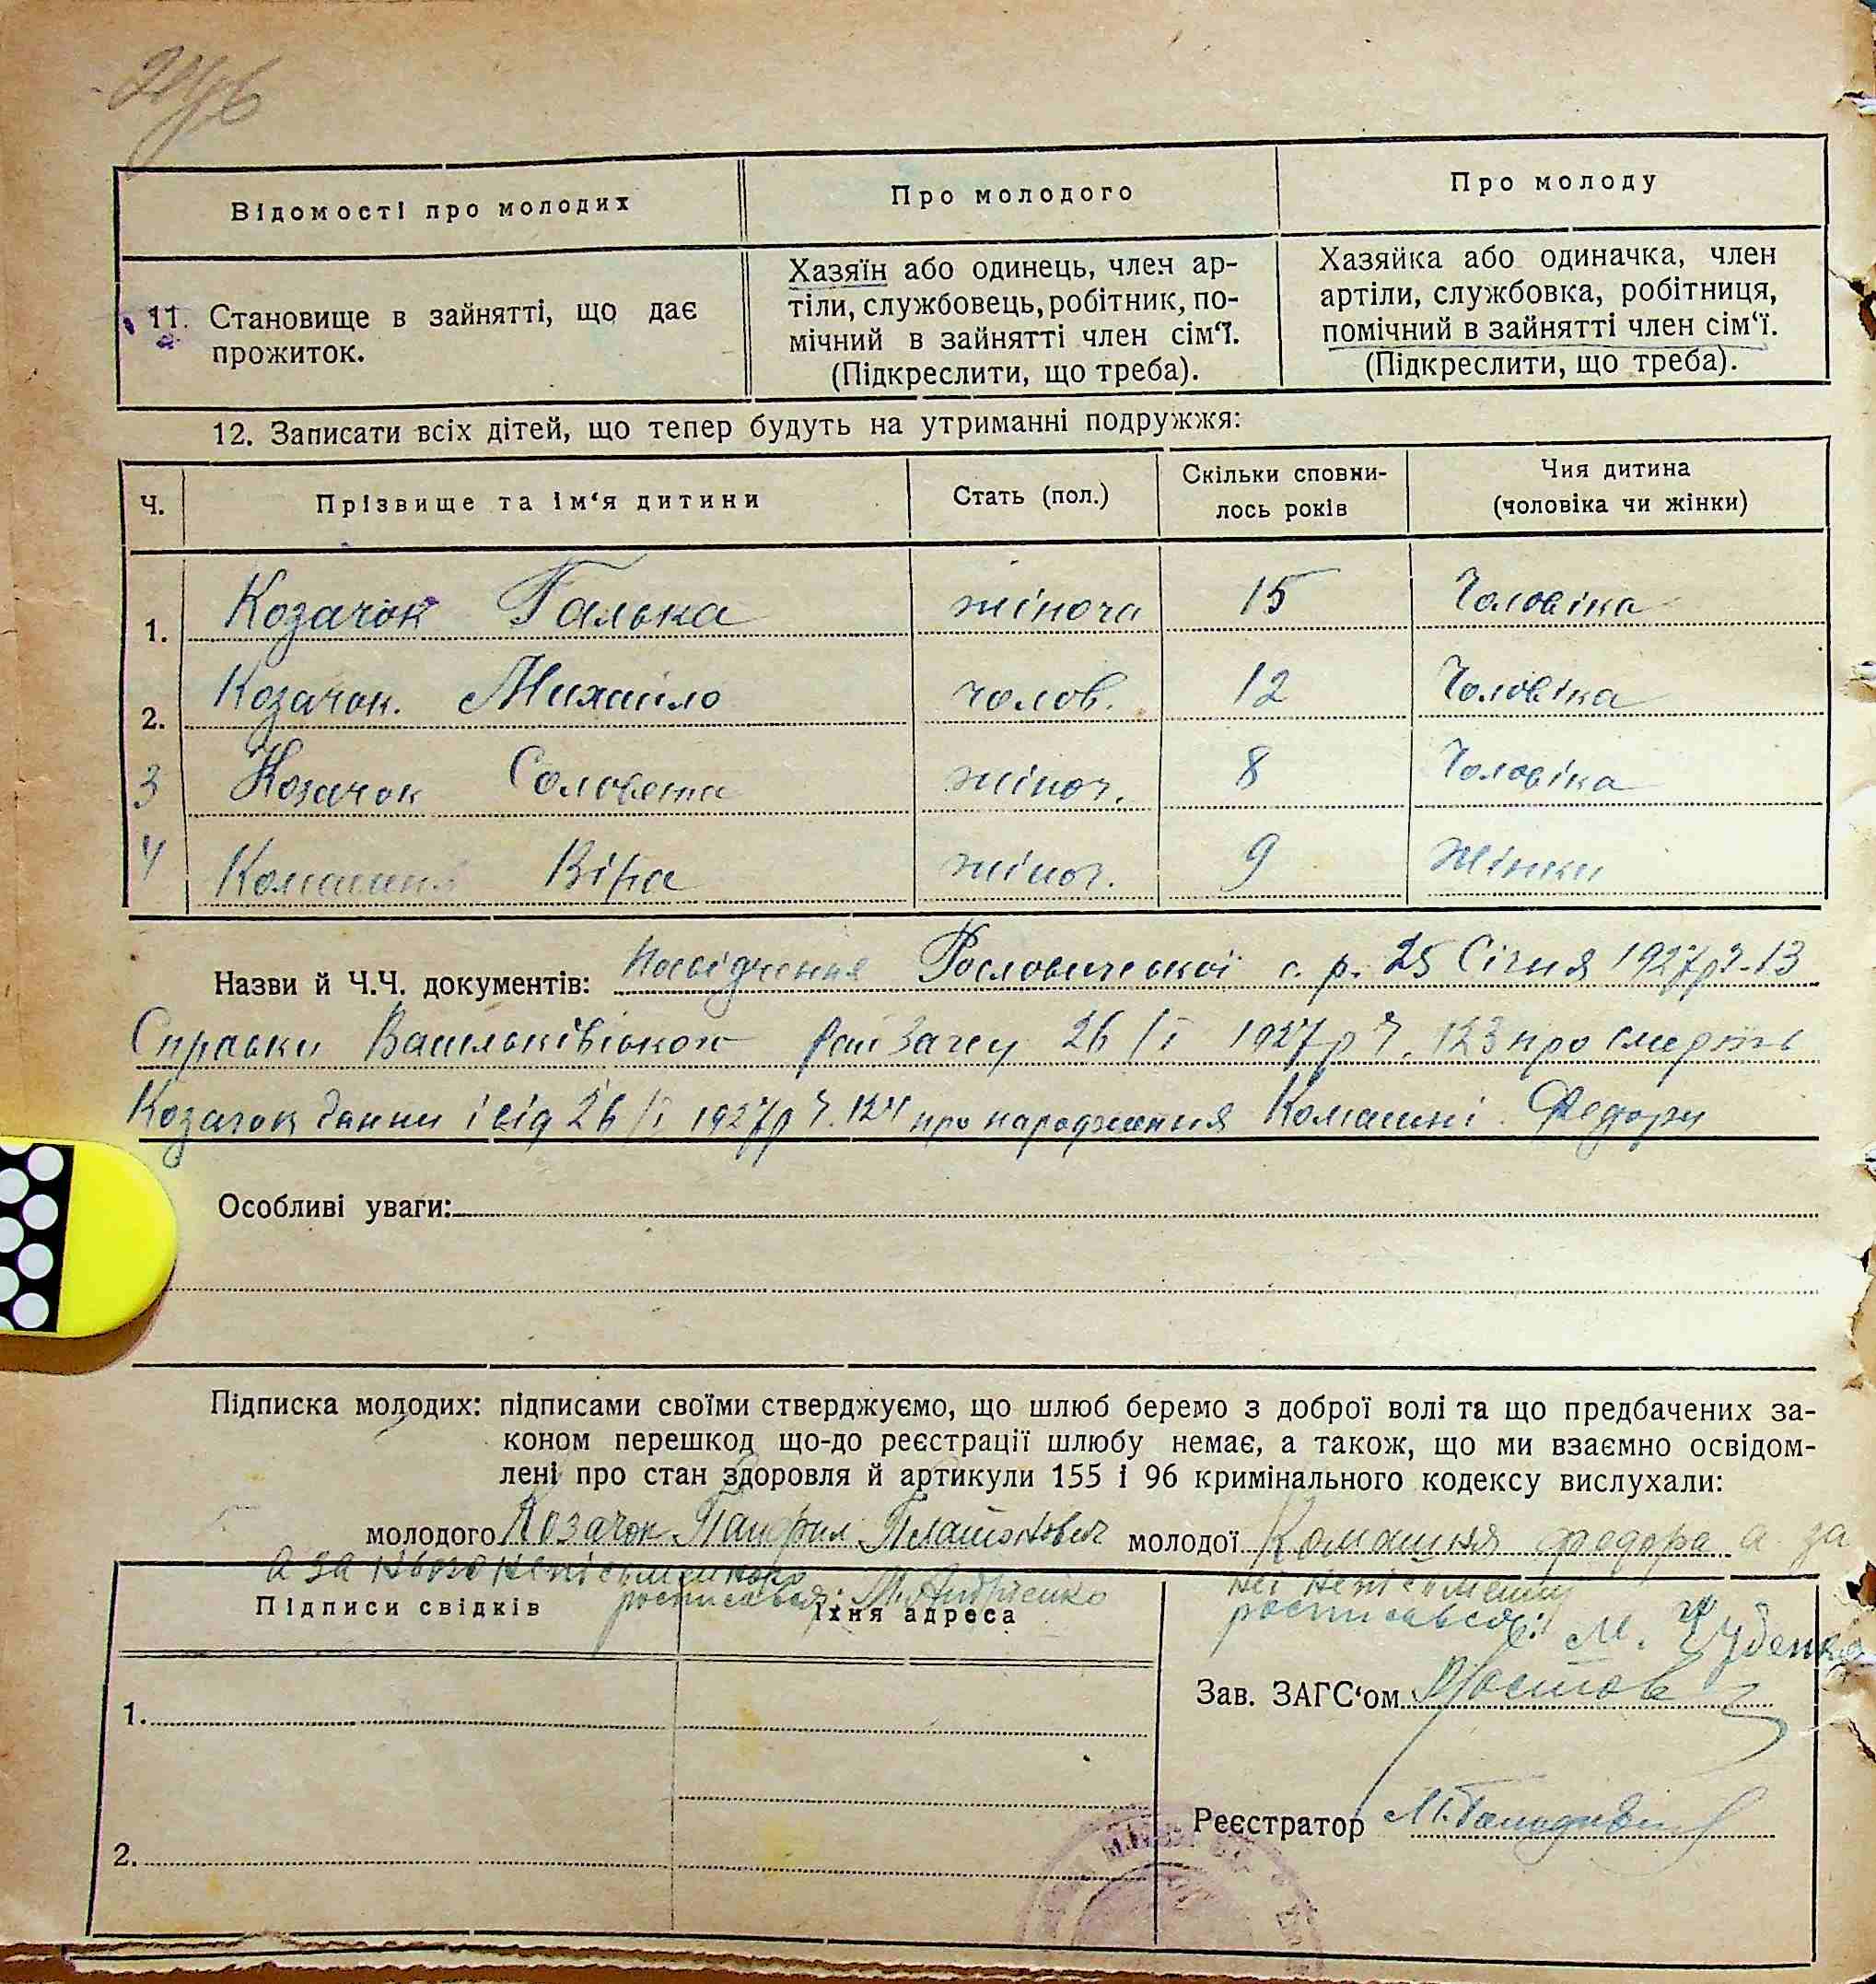 Відомості про молодих
Про молодого
Про молоду
11. Становище в зайнятті, що дає
прожиток.
Хазяїн або одинець, член ар-
тіли, службовець, робітник, по-
мічний в зайнятті член сім'ї.
(Підкреслити, що треба).
Хазяйка або одиначка, член
артіли, службовка, робітниця,
помічний в зайнятті член сім'ї.
(Підкреслити, що треба).
12. Записати всіх дітей, що тепер будуть на утриманні подружжя:
Ч. Прізвище та ім'я дитини Стать (пол.) Скільки сповни-
лось років Чия дитина
(чоловіка чи жінки)
1. Козачок Галька жіноча 15 Чоловіка
2. Козачок. Михайло чолов. 12 Чоловіка
3 Козачок жіноч. 8 Чоловіка
4 Комашня Віра жіноч. 9 Жінки
Назви й Ч.Ч. документів: Посвідчення Рословичської с. р. 25 Січня 1927р Ч. 13
Справки Васильківського 26/I 1927р Ч. 123 про смерть
Козачок Ганни і від 26/I 1927р Ч. 124 про народження Комашні Федори
Особливі уваги:
Підписка молодих: підписами своїми стверджуємо, що шлюб беремо з доброї волі та що предбачених за-
коном перешкод що-до реєстрації шлюбу немає, а також, що ми взаємно освідом-
лені про стан здоровля й артикули 155 і 96 кримінального кодексу вислухали:
молодого Козачок Панфил Платонович молодої Комашня федора а за
а за нього неписьменного
росписався: М. Андрієнко
неї неписьменну
росписався: М.
Підписи свідків
Їхня адреса
Зав. ЗАГС'ом
1.
Реєстратор
2.